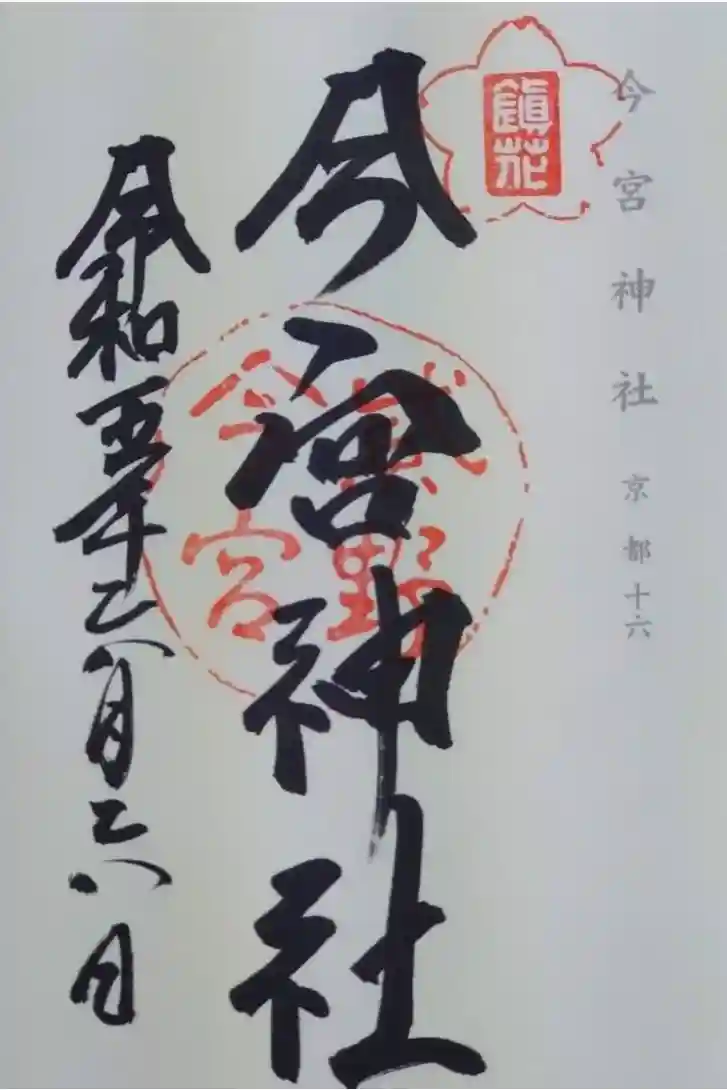 今宮神社 京都十六
鎭花
今宮神社
野
今宮
令和五年六月六日